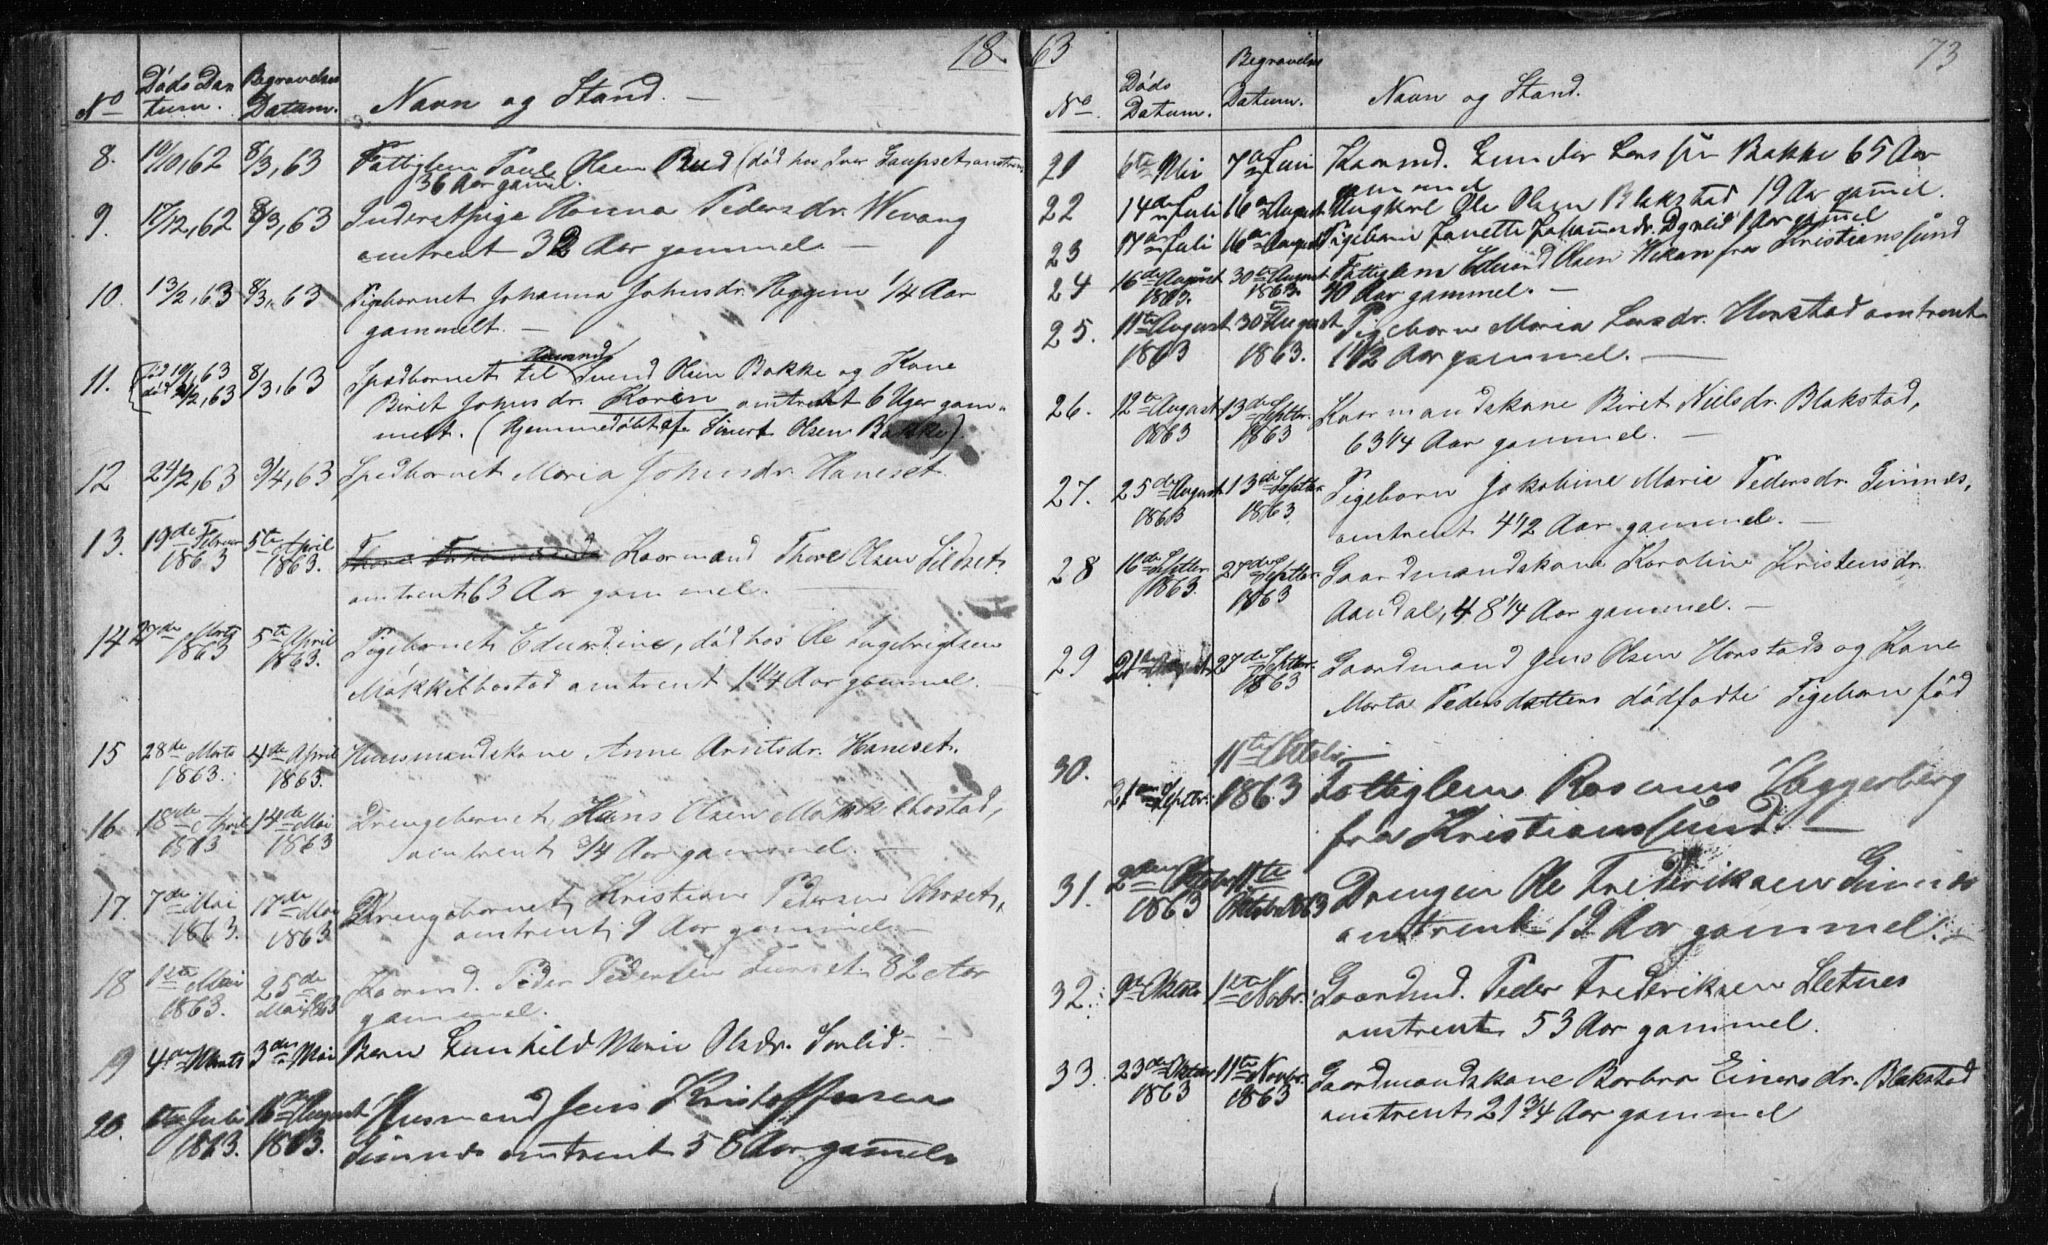 1863
73
No Døds Da- tum. Begravelses Datum. Navn og Stand. —
8. 19/10,62 8/3,63 Fattiglem Paul Olsen Rud (død hos Iver Gaupset, omtrent
36 Aar gammel.
9. 17/12,62 8/3,63 Inderstpige Hanna Pedersdr. Wevang
omtrent 32 Aar gammel. —
10. 13/2,63 8/3,63 Pigebarnet Johanna Johnsdr. Heggem 1/4 Aar
gammelt. —
11. 8/3,63 Spædbarnet til Svend Olsen Bakke og Kone
død 21/2,63 Beret Johnsdr. Karen omtrent 6 Uger gam-
melt. (Hjemmedøbt af Sivert Olsen Bakke).
12 24/2,63 3/4,63 Spædbarnet Maria Johnsdr. Haneset.
13. 19de Februar 1863 5te April 1863. Kaarmand Thore Olsen Sildset
omtrent 63 Aar gammel. —
14 27de Marts 1863 5te April 1863. Pigebarnet Edvardine, død hos Ole Ingebrigtsen
Møkkelbostad omtrent 1 1/4 Aar gammel. —
15 28de Marts 1863. 4de April 1863. Huusmandskone Anne Arntsdr. Haneset.
16 18de April 1863 14de Mai 1863 Drengebarnet Hans Olsen Møkkelbostad,
omtrent 3/4 Aar gammel. —
17. 7de Mai 1863. 17de Mai 1863 Drengebarnet Kristian Pedersen Orset,
omtrent 9 Aar gammel. —
18 1ste Mai 1863. 25de Mai 1863 Kaarmd. Peder Pedersen 82 Aar
gammel.
19 4de Marts 3de Mai Barn Gunhild Marie Olsdr. Sorlid.
20. 6te Juli 1863. 16de August 1863. Husmand Jens Kristoffersen
Gimnes omtrent 58 Aar gammel.
No. Døds Datum. Begravelses Datum. Navn og Stand.
21 6te 7de Juni Kaarmd. Gunder Larssen Bakke 65 Aar
gammel
22 14de Juli 16de August Ungkarl Ole Olsen Blakstad 19 Aar gammel.
23 17de Juli 16de August Pigebarn Janette Johannesdr. 1 Aar gammel
24 16de August 1863. 30te August 1863. Fattiglem Edvard Olsen Wikan fra Kristianssund
40 Aar gammel. —
25. 11te August 1863 30te August 1863. Pigebarn Maria Larsdr. Harstad omtrent
1 1/2 Aar gammel. —
26. 12te August 1863 13de Septbr. 1863 Kaarmandskone Beret Nielsdr. Blakstad,
63 1/4 Aar gammel. —
27. 25de August 1863 13de Septbr. 1863. Pigebarn Jakobine Marie Pedersdr. Gimnes,
omtrent 4 1/2 Aar gammel. —
28 16de Septbr. 1863. 27de Septbr. 1863 Gaardmandskone Karoline Kristensdr.
Aandal, 48 1/4 Aar gammel. —
29 21de August 27de Septbr. 1863 Gaardmand Jens Olsen Harstads og Kone
Marta Pedersdatters dødfødte Pigebarn fød
30. 21de Septbr. 11te Oktober 1863 Fattiglem Rasmus Haggerberg
fra Kristianssund. —
31. 2den Oktober 1863 11te Oktober 1863 Drengen Ole Frederiksen Gimnes
omtrent 12 Aar gammel. —
32. 9de Oktober 1ste Novbr. Gaardmd. Peder Frederiksen Sletnes
omtrent 53 Aar gammel.
33. 23de Oktober 1863 11te Novbr. 1863 Gaardmandskone Barbra Einersdr. Blakstad
omtrent 21 3/4 Aar gammel